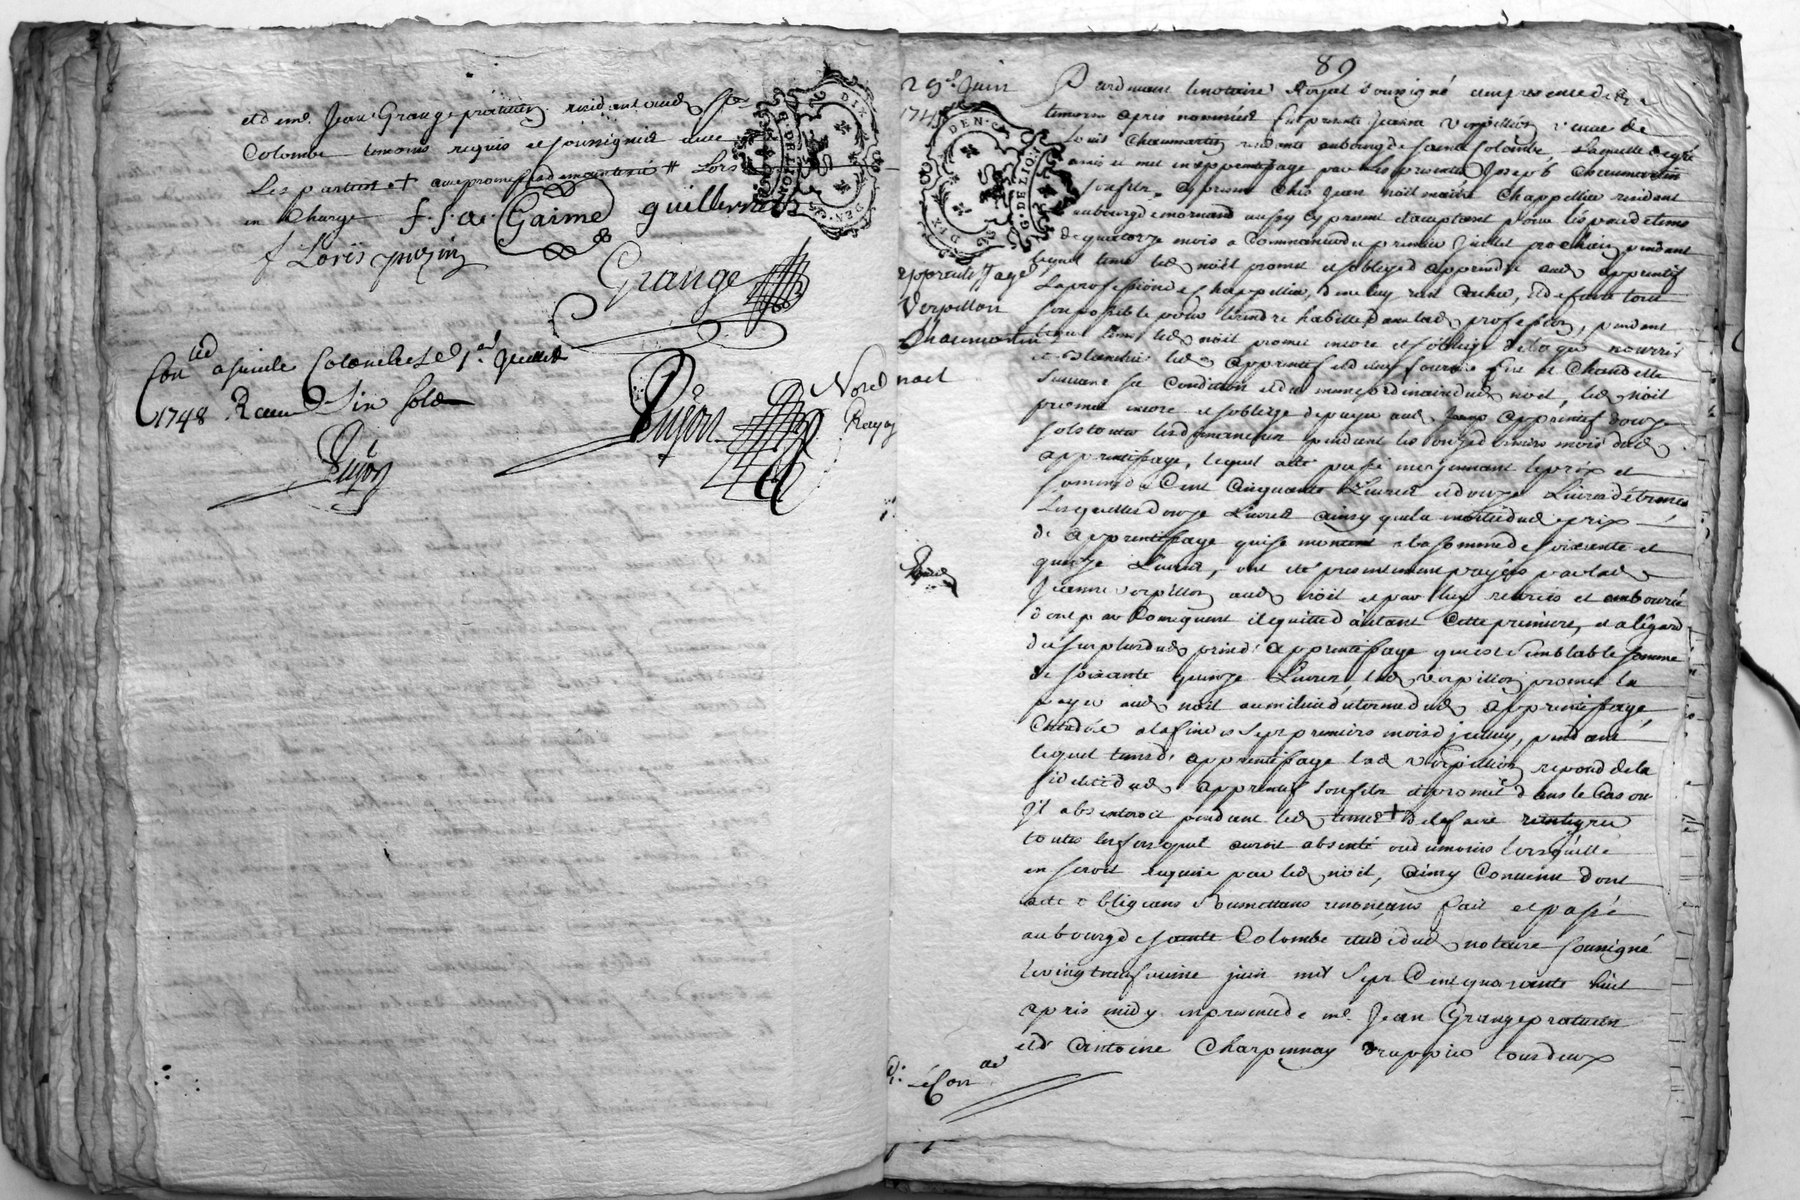 et de me. Jean Grange praticien residant aud Ste
Colombe temoins requis et soussignés avec
Les parties + avec promesse de maintenir # Loris
en Charge f. s. a. Gaime guillermin
f Loris
Grange
Conlled a sainte Colombe Le 1er Juillet
1748 Receu Six sols
Pujon
Pujon
29e Juin
1748
apprentissage
Verpillon
Chaumartin
Noel noel
Rayé
89
Pardevant le notaire Royal soussigné en presence des
temoins apres nommés fut presente Jeanne Verpillon veuve de
Louis Chaumartin residante au bourg de sainte Colombe, Laquelle de gré
a mis et met en apprentissage par les presentes Joseph Chaumartin
son fils, a present chés Jean noël maitre Chappellier residant
au bourg de normand aussy cy present et acceptant pour l'espace de tems
de quatorze mois a Commancer du premier Juillet prochain pendant
lequel tems led noël promet et s'oblige d'apprendre aud apprentif
La profession de chappellier, de ne luy rien cacher, et de faire tout
son possible pour le rendre habille dans lad profession, pendant
lequel tems led noël promet encore et s'oblige de loger nourrir
et blanchir led apprentif et de luy fournir feu et Chandelle
suivant sa Condition et de meme ordinaire dud noël, led noël
promet encore et s'oblige de payer aud apprentif douze
sols toutes les dimanches pendant les onze derniers mois dud
apprentissage, lequel a été passé moyennant le prix et
somme de Cent Cinquante Livres et douze Livres d'étrennes
Lesquelles douze Livres ainsy que la moitié dud prix
de apprentissage qui se montent a la somme de soixante et
quinze Livres, ont été presentement payées par lad
Jeanne verpillon aud noël et par luy receües et emboursé
dont par Consequent il quitte d'autant Cette premiere, et a l'égard
du surplus dud prix d'apprentissage qui est semblable somme
de soixante quinze Livres, lad verpillon promet la
payer aud noël au milieu du terme dud apprentissage,
C'est a dire a la fin des sept premiers mois d'jceluy, pendant
lequel tems d'apprentissage lad verpillon repond de la
fidelité dud apprentif son fils et promet dans le Cas ou
jl absenteroit pendant led tems + de le faire reintegrer
toutes les fois quil auroit absenté ou du moins lorsqu'elle
en seroit requise par led noël, ainsy Convenu dont
acte obligeans soumettans renonçans fait et passé
au bourg de sainte Colombe etude dud notaire soussigné
le vingt neufvieme juin mil sept Cent quarante huit
apres midy en presence de me. Jean Grange praticien
et de Antoine Charpennay drappier tous deux